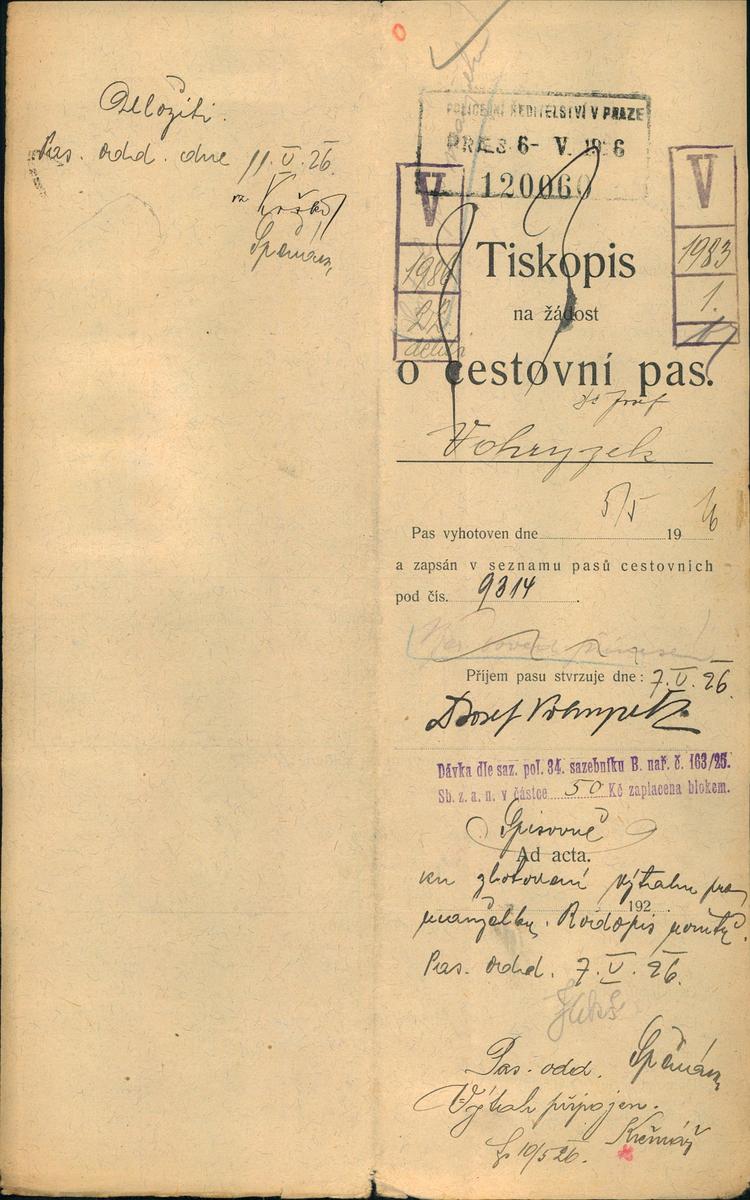 Odložiti.
Pas. odd. dne 11.V.26.
POLICEJNÍ ŘEDITELSTVÍ V PRAZE
PRAES 6- V. 1926
120060
V
1983
1.
V
Tiskopis
na žádost
o cestovní pas.
Josef
Vohryzek
Pas vyhotoven dne 5/5 19 26
a zapsán v seznamu pasů cestovních
pod čís. 9314
Příjem pasu stvrzuje dne: 7.V.26.
Josef Vohryzek
Dávka dle saz. pol. 34. sazebníku B. nař. č. 163/25.
Sb. z. a. n. v částce 50 Kč zaplacena blokem.
Spisovně
Ad acta.
ku zhotovení výtahu pro
192
manželku. Rodopis
Pas. odd. 7.V.26.
Pas. odd.
Výtah připojen.
10/5 26.